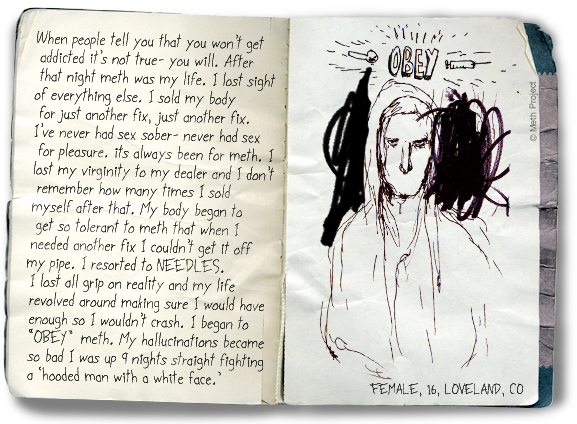 When people tell you that you won't get
addicted it's not true- you will. After
that night meth was my life. I lost sight
of everything else. I sold my body
for just another fix, just another fix.
I've never had sex sober- never had sex
for pleasure. its always been for meth. I
lost my virginity to my dealer and I don't
remember how many times I sold
myself after that. My body began to
get so tolerant to meth that when I
needed another fix I couldn't get it off
my pipe. I resorted to NEEDLES.
I lost all grip on reality and my life
revolved around making sure I would have
enough so I wouldn't crash. I began to
"OBEY" meth. My hallucinations became
so bad I was up 9 nights straight fighting
a 'hooded man with a white face.'
OBEY
© Meth Project
FEMALE, 16, LOVELAND, CO